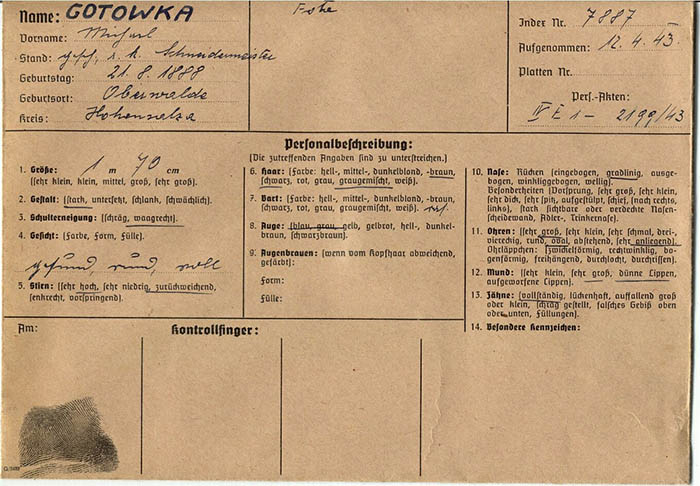 Name: GOTOWKA
Vorname: Michael
Stand: gesch., r. k. Schneidermeister
Geburtstag: 21. 8. 1888
Geburtsort: Oberwalde
Kreis: Hohensalza
Index Nr. 7887 —
Aufgenommen: 12. 4. 43.
Platten Nr.
Pers.-Akten:
IV E 1 — 2199/43
Personalbeschreibung:
(Die zutreffenden Angaben sind zu unterstreichen.)
1. Größe: 1 m 70 cm
(sehr klein, klein, mittel, groß, sehr groß).
2. Gestalt: (stark, untersetzt, schlank, schwächlich).
3. Schulterneigung: (schräg, waagrecht).
4. Gesicht: (Farbe, Form, Fülle).
gesund, rund, voll
5. Stirn: (sehr hoch, sehr niedrig, zurückweichend,
senkrecht, vorspringend).
6. Haar: (Farbe: hell-, mittel-, dunkelblond, -braun,
schwarz, rot, grau, graugemischt, weiß).
7. Bart: (Farbe: hell-, mittel-, dunkelblond, -braun,
schwarz, rot, grau, graugemischt, weiß).
8. Auge: (blau, grau, gelb, gelbrot, hell-, dunkel-
braun, schwarzbraun).
9. Augenbrauen: (wenn vom Kopfhaar abweichend,
gefärbt):
Form:
Fülle:
10. Nase: Rücken (eingebogen, gradlinig, ausge-
bogen, winkliggebogen, wellig).
Besonderheiten (Vorsprung, sehr groß, sehr klein,
sehr dick, sehr spitz, aufgestülpt, schief, (nach rechts,
links), stark sichtbare oder verdeckte Nasen-
scheidewand, Adler-, Trinkernase).
11. Ohren: (sehr groß, sehr klein, sehr schmal, drei-,
viereckig, rund, oval, abstehend, sehr anliegend).
Ohrläppchen: (zwickelförmig, rechtwinklig, bo-
genförmig, freihängend, durchlocht, durchrissen).
12. Mund: (sehr klein, sehr groß, dünne Lippen,
aufgeworfene Lippen).
13. Zähne: (vollständig, lückenhaft, auffallend groß
oder klein, schräg gestellt, falsches Gebiß oben
oder unten, Füllungen).
14. Besondere Kennzeichen:
Am:
Kontrollfinger: